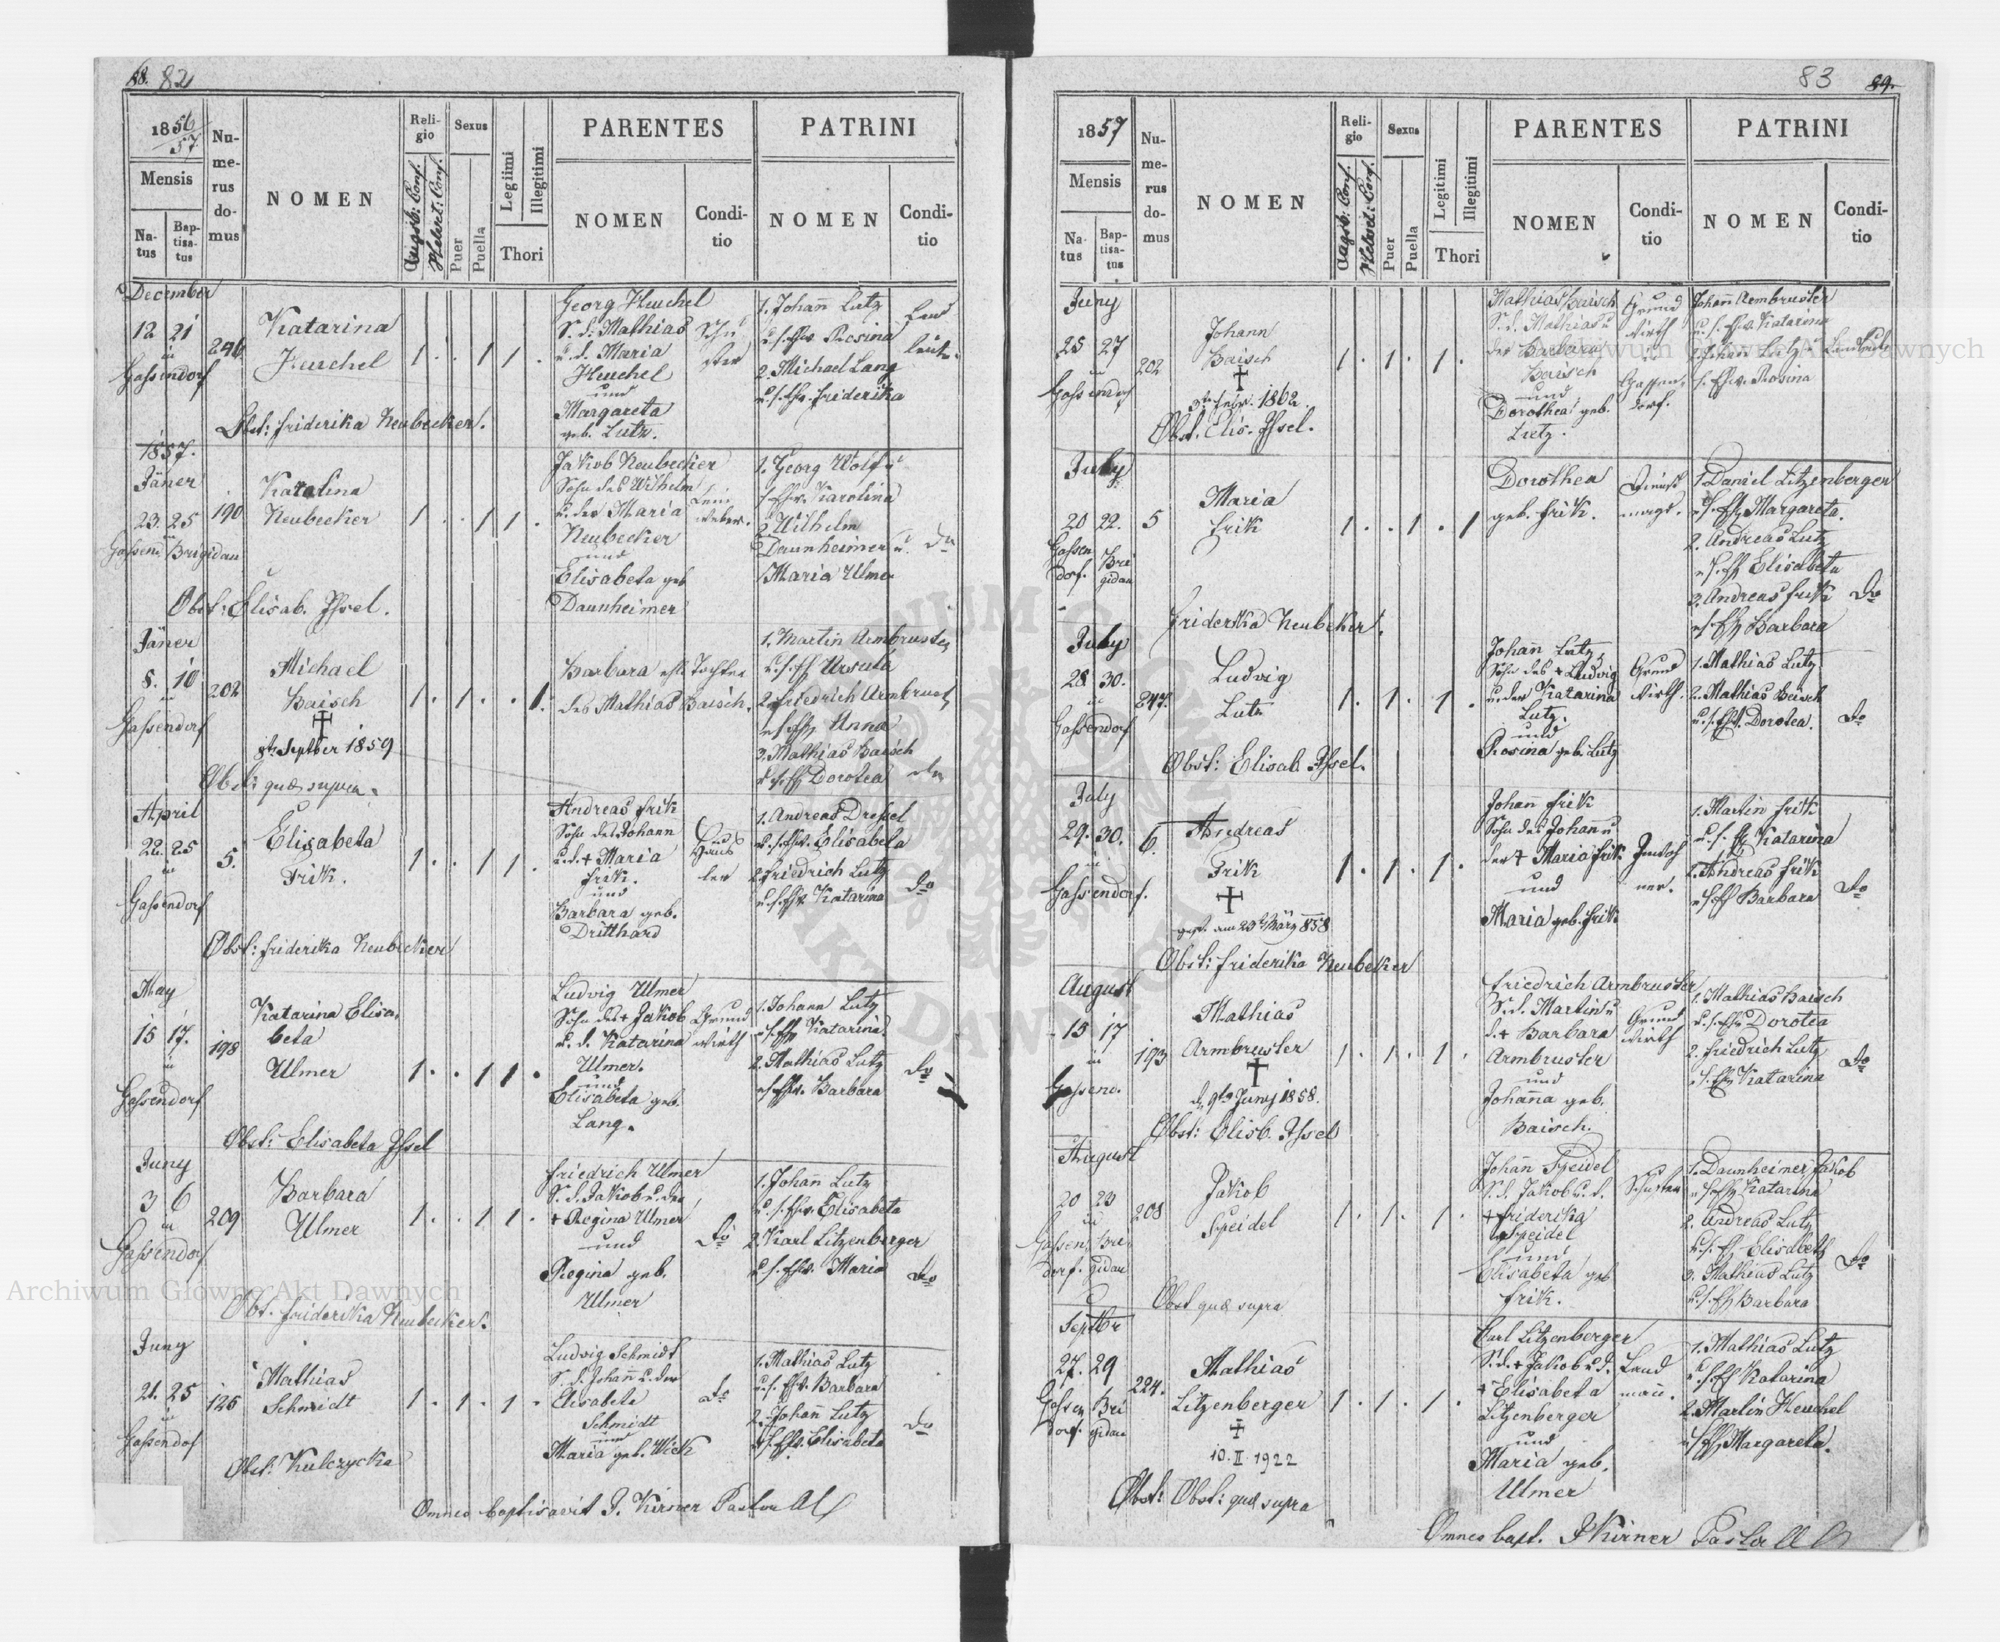 88. 82
1856
57
Mensis
Na-
tus
Bap-
tisa-
tus
Nu-
me-
rus
do-
mus
NOMEN
Reli-
gio
Augsb: Conf.
Helvet: Conf.
Sexus
Puer
Puella
Legiimi
Illegitimi
Thori
PARENTES
NOMEN
Condi-
tio
PATRINI
NOMEN
Condi-
tio
December
12 21
in
Gassendorf
246
Katarina
Heuchel
1 . . 1 1 .
Georg Heuchel
S. d. Mathias
u. d. Maria
Heuchel
und
Margareta
geb. Lutz.
Schu
ster
1. Johann Lutz
u. s. Ehw. Rosina
2. Michael Lang
u. s. Ehw. Friderika
Land
leute
Obst: Friderika Neubecker.
1857.
Jäner
23. 25
Gassend Brigidau
190
Katarina
Neubecker
1 . . 1 1 .
Jakob Neubecker
Sohn des Wilhelm
u. der Maria
Neubecker
und
Elisabeta geb
Daunheimer
Lein
weber.
1. Georg Wolf u
s. Ehw. Karolina
2. Wilhelm
Daunheimer u.
Maria Ulmer
do
Obst: Elisab. Issel.
Jäner
8. 10
in
Gassendorf
202
Michael
Baisch
†
8t Septber 1859
1 . 1 . . 1.
Barbara ehl. Tochter
des Mathias Baisch.
1. Martin Armbruster
u. s. Eh Ursula
2. Friedrich Armbrust
u s Eh Anna
3. Mathias Baisch
u. s. Eh Dorotea
do
Obst: quae supra.
April
22. 25
in
Gassendorf
5.
Elisabeta
Frik.
1 . . 1 1 .
Andreas Frik
Sohn des Johann
u. d. + Maria
Frik.
und
Barbara geb.
Dritthard
Häus
ler
1. Andreas Dressel
u. s. Ehw. Elisabeta
2. Friedrich Lutz
u. s. Eh. Katarina
do
Obst: Friderika Neubecker
May
15 17.
in
Gassendorf
198
Katarina Elisa,
beta
Ulmer
1 . . 1 1 .
Ludvig Ulmer
Sohn des + Jakob
u. d. Katarina
Ulmer.
und
Elisabeta geb.
Lang.
Grund
wirth
1. Johann Lutz
u s Eh Katarina
2. Mathias Lutz
u s Ehw. Barbara
do
Obst: Elisabeta Issel
Juny
3 6
in
Gassendorf
209
Barbara
Ulmer
1 . . 1 1 .
Friedrich Ulmer
S. d. Jakob u. der
+ Regina Ulmer
und
Regina geb.
Ulmer
do
1. Johan̄ Lutz
u. s. Ehw. Elisabeta
2. Karl Litzenberger
u. s. Ehw. Maria
do
Obst. Friderika Neubecker.
Juny
21. 25
in
Gassendof
126
Mathias
Schmidt
1 . 1 . 1 .
Ludvig Schmidt
S. d. Johan̄ u. der
Elisabeta
Schmidt
und
Maria geb. Wick
do
1. Mathias Lutz
u. s. Ehw. Barbara
2. Johan̄ Lutz
u s Ehw. Elisabeta
do
Obst: Kulczycka
Omnes baptisavit J. Kirner Pastor
83 89.
1857
Mensis
Na-
tus
Bap-
tisa-
tus
Nu-
me-
rus
do-
mus
NOMEN
Reli-
gio
Augsb: Conf.
Helvet: Conf.
Sexus
Puer
Puella
Legitimi
Illegitimi
Thori
PARENTES
NOMEN
Condi-
tio
PATRINI
NOMEN
Condi-
tio
Juny
25 27
in
Gassendorf
202
Johann
Baisch
†
3t Febr. 1862.
1 . 1 . 1 .
Mathias Baisch
S. d. Mathias u
der Barbara
Baisch
und
Dorothea geb.
Lutz.
Grund
wirth
in
Gassen,
dorf.
Johan̄ Armbruster
u. s. Ehw. Katarina
Johan̄ Lutz u
s. Ehw. Rosina
Landleute
Obst. Elis. Issel.
July
20 22.
Gassen Bri
dorf. gidau
5
Maria
Frik
1 . . 1 . 1
Dorothea
geb. Frik.
Dienst
magd.
1. Daniel Litzenberger
u s. Eh Margareta.
2. Andreas Lutz
u s. Eh Elisabeta
3. Andreas Frik
u s Eh Barbara
do
Friderika Neubeker.
July
28 30.
in
Gassendorf
247.
Ludvig
Lutz
1 . 1 . 1 .
Johan̄ Lutz,
Sohn des + Ludvig
u. der Katarina
Lutz.
und
Rosina geb. Lutz
Grund
wirth.
1. Mathias Lutz
2. Mathias Baisch
u. s. Ehw. Dorotea.
do
Obst: Elisab. Issel.
July
29. 30.
in
Gassendorf.
6.
Andreas
Frik
†
gest. am 23t März 858
1 . 1 . 1 .
Johan̄ Frik
Sohn des Johan̄ u
der + Maria Frik
und
Maria geb. Frik
Inwoh
ner.
1. Martin Frik
u. s. Eh Katarina
2. Andreas Frik
u s Eh Barbara
do
Obst: Friderika Neubeker
August
15 17
in
Gassend.
193
Mathias
Armbruster
†
d 9t Juny 1858.
1 . 1 . 1 .
Friedrich Armbruster
S. d. Martin u
d. + Barbara
Armbruster
und
Johan̄a geb.
Baisch.
Grund
wirth
1. Mathias Baisch
u. s. Ehw Dorotea
2. Friedrich Lutz
u s. Eh Katarina
do
Obst: Elisb. Issel
August
20 23
in
Gassen, Bri,
dorf. gidau
208
Jakob
Speidel
1 . 1 . 1 .
Johan̄ Speidel
S. d. Jakob u. d.
+ Friderika
Speidel
und
Elisabeta geb
Frik.
Schuster
1. Daunheimer Jakob
u s Eh Katarina
2. Andreas Lutz
u. s. Eh Elisabeth
3. Mathias Lutz
u. s. Eh Barbara
do
Obst quae supra
Septbr
27. 29
Gassen Bri
dorf. gidau
224.
Mathias
Litzenberger
‡
10. II. 1922
1 . 1 . 1 .
Carl Litzenberger
S. d. + Jakob u. d.
+ Elisabeta
Litzenberger
und
Maria geb.
Ulmer
Land
man̄.
1. Mathias Lutz
u. s. Eh Katarina
2. Martin Heuchel
u s Eh Margareta.
Obst: Obst: quae supra
Omnes bapt. J Kirner Pastor
Archiwum Główne Akt Dawnych
Archiwum Główne Akt Dawnych